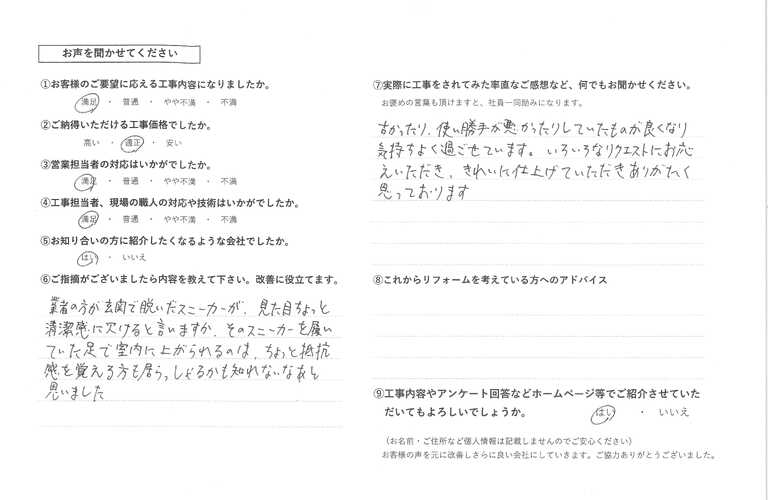 お声を聞かせてください
①お客様のご要望に応える工事内容になりましたか。
満足 ・ 普通 ・ やや不満 ・ 不満
②ご納得いただける工事価格でしたか。
高い ・ 適正 ・ 安い
③営業担当者の対応はいかがでしたか。
満足 ・ 普通 ・ やや不満 ・ 不満
④工事担当者、現場の職人の対応や技術はいかがでしたか。
満足 ・ 普通 ・ やや不満 ・ 不満
⑤お知り合いの方に紹介したくなるような会社でしたか。
はい ・ いいえ
⑥ご指摘がございましたら内容を教えて下さい。改善に役立てます。
業者の方が玄関で脱いだスニーカーが、見た目ちょっと
清潔感に欠けると言いますか、そのスニーカーを履い
ていた足で室内に上がられるのは、ちょっと抵抗
感を覚える方も居らっしゃるかも知れないなあと
思いました
⑦実際に工事をされてみた率直なご感想など、何でもお聞かせください。
お褒めの言葉も頂けますと、社員一同励みになります。
古かったり、使い勝手が悪かったりしていたものが良くなり
気持ちよく過ごせています。いろいろなリクエストにお応
えいただき、きれいに仕上げていただきありがたく
思っております
⑧これからリフォームを考えている方へのアドバイス
⑨工事内容やアンケート回答などホームページ等でご紹介させていた
だいてもよろしいでしょうか。 はい ・ いいえ
（お名前・ご住所など個人情報は記載しませんのでご安心ください）
お客様の声を元に改善しさらに良い会社にしていきます。ご協力ありがとうございました。